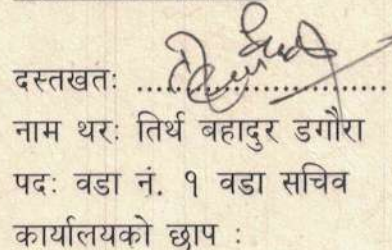 दस्तखतः ........................
नाम थरः तिर्थ बहादुर डगौरा
पदः वडा नं. १ वडा सचिव
कार्यालयको छाप :